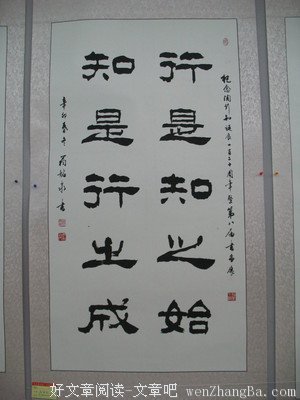 纪念陶行知诞辰一百二十周年暨第八届书画展
行是知之始
知是行之成
辛卯春 书
好文章阅读-文章吧 wenZhangBa.com